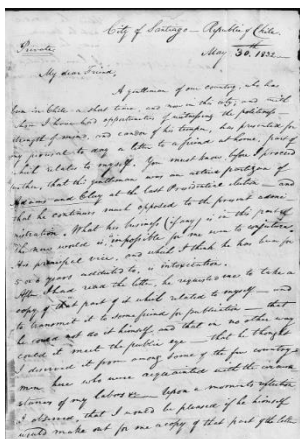 City of Santiago – Republic of Chile
Private
May 30th 1832
My dear Friend,
A gentleman of our country, who has
been in Chile a short time, and now in the city, and with
whom I have had opportunities of witnessing the politeness
strength of mind, and candor of his temper, has presented for
my perusal to day a letter to a friend at home, part of
which relates to myself. You must know, before I proceed
further, that this gentleman was an active partizan of
Adams and Clay at the last Presidential election – and
that he continues much opposed to the present admi-
nistration. What his business (if any) is in this part of
the new world is impossible for me even to conjecture.
His principal vice, and which I think he has been for
5 or 6 years addicted to, is intoxication.
After I had read the letter, he requested me to take a
copy of that part of it which related to myself – and
to transmit it to some friend for publication – that
he could not do it himself, and that in no other way
could it meet the public eye – that he thought
I deserved it from among some of the few country-
men here who were acquainted with the circum
stances of my labors – Upon a moments reflection
I observed, that I would be pleased if he himself
would make out for me a copy of that part of the letter